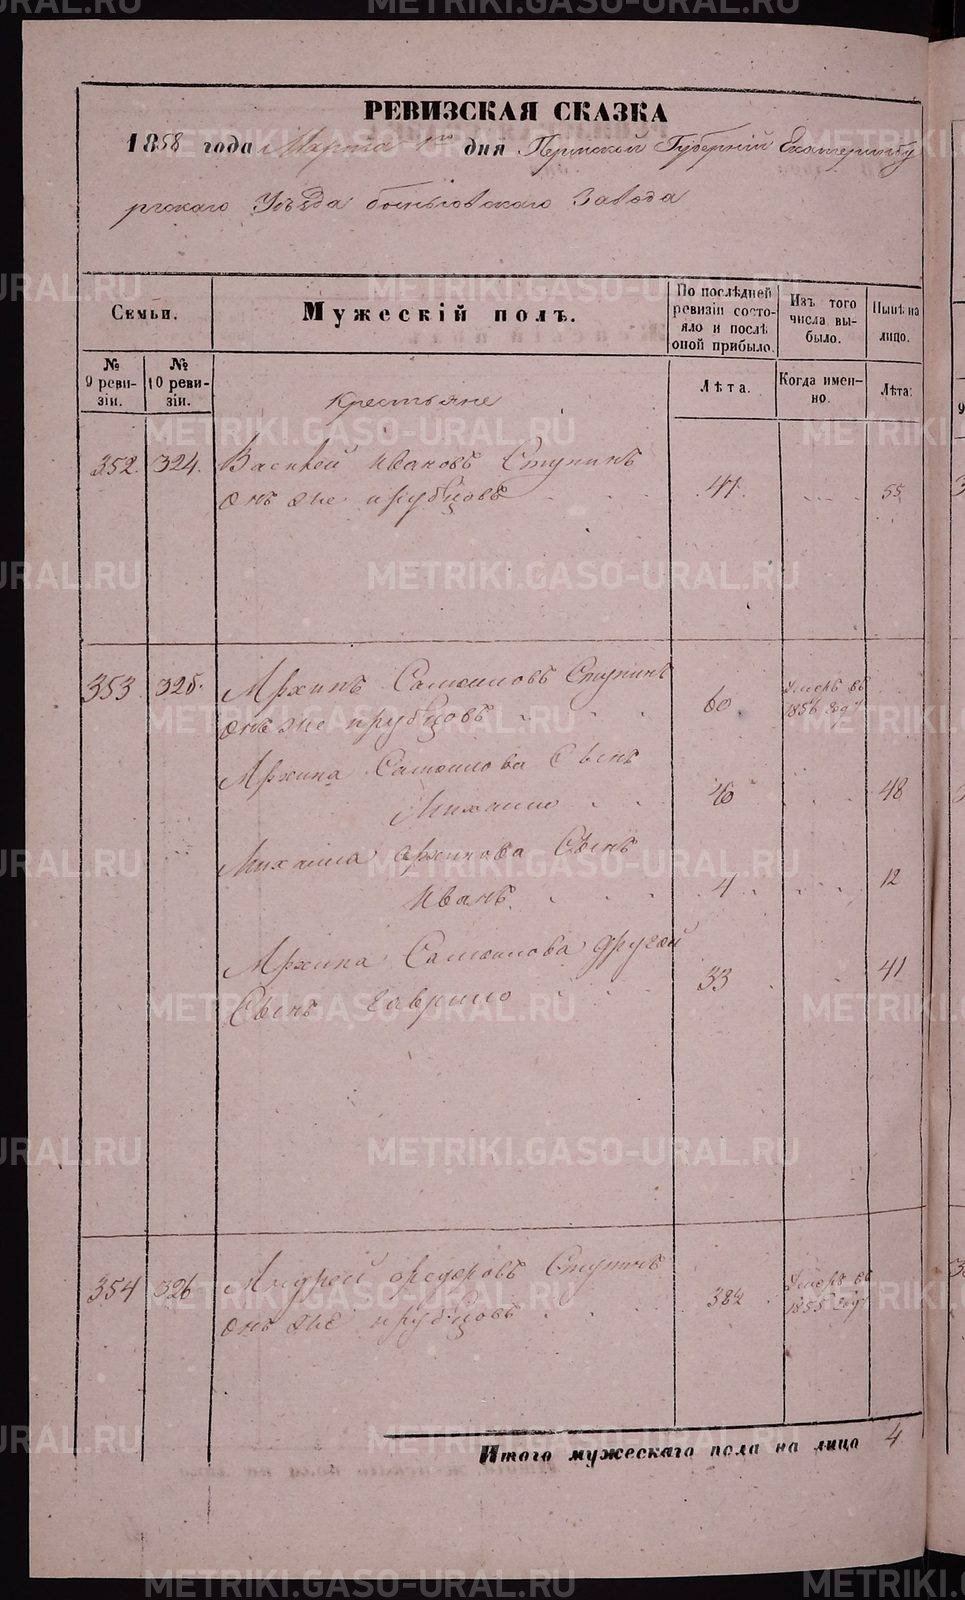 РЕВИЗСКАЯ СКАЗКА
1858 года Марта 1го дня Пермской Губерніи Екатеринбу
ргскаго Уѣзда Завода
Семьи.
Мужескій полъ.
По послѣдней ревизіи состояло и послѣ оной прибыло.
Изъ того числа выбыло.
Нынѣ на лицо.
№ 9 ревизіи.
№ 10 ревизіи.
Лѣта.
Когда именно.
Лѣта.
крестьяне
352. 324. Василей Ивановъ Ступинъ
онъ же прубцовъ 47. 55
353 325. Архипъ Самоиловъ Ступинъ
онъ же прубцовъ 60 Умеръ въ 1856 году
Архипа Самоилова Сынъ
Михаило 40 48
Михаила Архипова Сынъ
Иванъ 4 12
Архипа Самоилова другой
Сынъ Гаврило 33 41
354 326 Андрей Федоровъ Ступинъ
онъ же прубцовъ 38½ Умеръ въ 1855 году
Итого мужескаго пола на лицо 4
METRIKI.GASO-URAL.RU